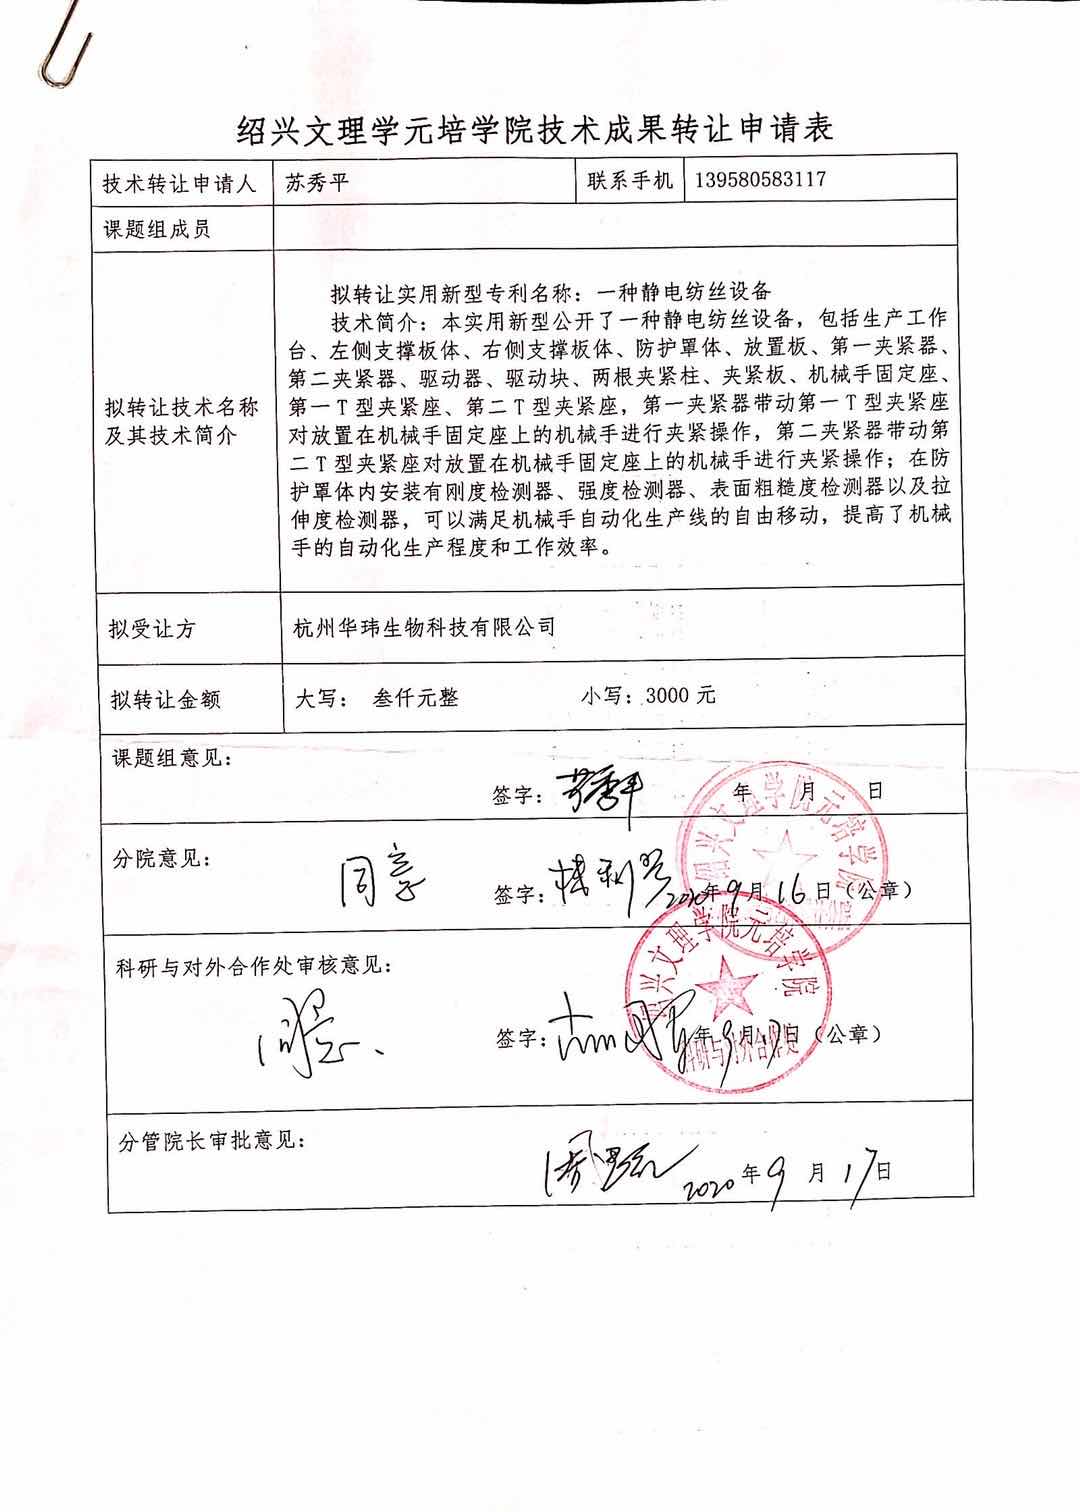 绍兴文理学元培学院技术成果转让申请表
技术转让申请人 苏秀平 联系手机 139580583117
课题组成员
拟转让技术名称及其技术简介
拟转让实用新型专利名称：一种静电纺丝设备
技术简介：本实用新型公开了一种静电纺丝设备，包括生产工作
台、左侧支撑板体、右侧支撑板体、防护罩体、放置板、第一夹紧器、
第二夹紧器、驱动器、驱动块、两根夹紧柱、夹紧板、机械手固定座、
第一T型夹紧座、第二T型夹紧座，第一夹紧器带动第一T型夹紧座
对放置在机械手固定座上的机械手进行夹紧操作，第二夹紧器带动第
二T型夹紧座对放置在机械手固定座上的机械手进行夹紧操作；在防
护罩体内安装有刚度检测器、强度检测器、表面粗糙度检测器以及拉
伸度检测器，可以满足机械手自动化生产线的自由移动，提高了机械
手的自动化生产程度和工作效率。
拟受让方 杭州华玮生物科技有限公司
拟转让金额 大写： 叁仟元整 小写：3000元
课题组意见：
签字：苏秀平 年 月 日
绍兴文理学院元培学院
分院意见：
同意 签字： 2020年9月16日（公章）
绍兴文理学院元培学院
科研与对外合作处
科研与对外合作处审核意见：
同意、 签字： 年9月17日（公章）
分管院长审批意见：
2020年9月17日